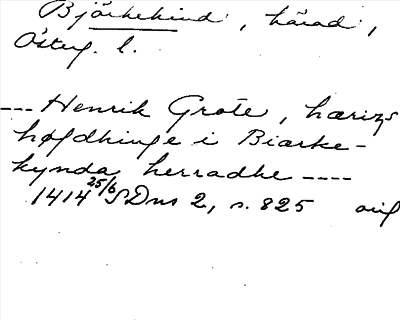 Björkekind, härad,
Österg. l.
--- Henrik Grote, hærizs
høfdhinge i Biærke-
kynda herradhe ----
1414 25/6 SDns 2, s. 825 orig